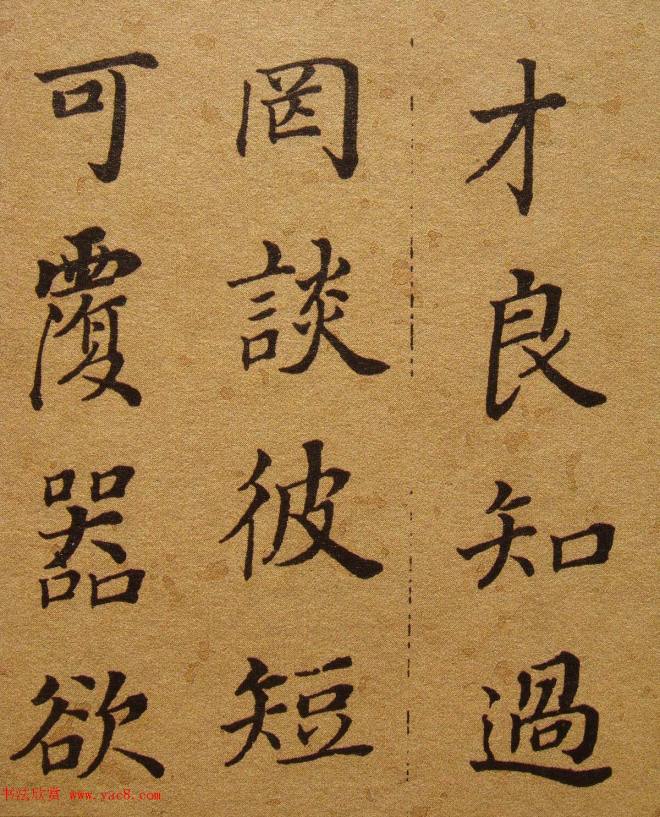 才良知過
罔談彼短
可覆器欲
书法欣赏 www.yac8.com